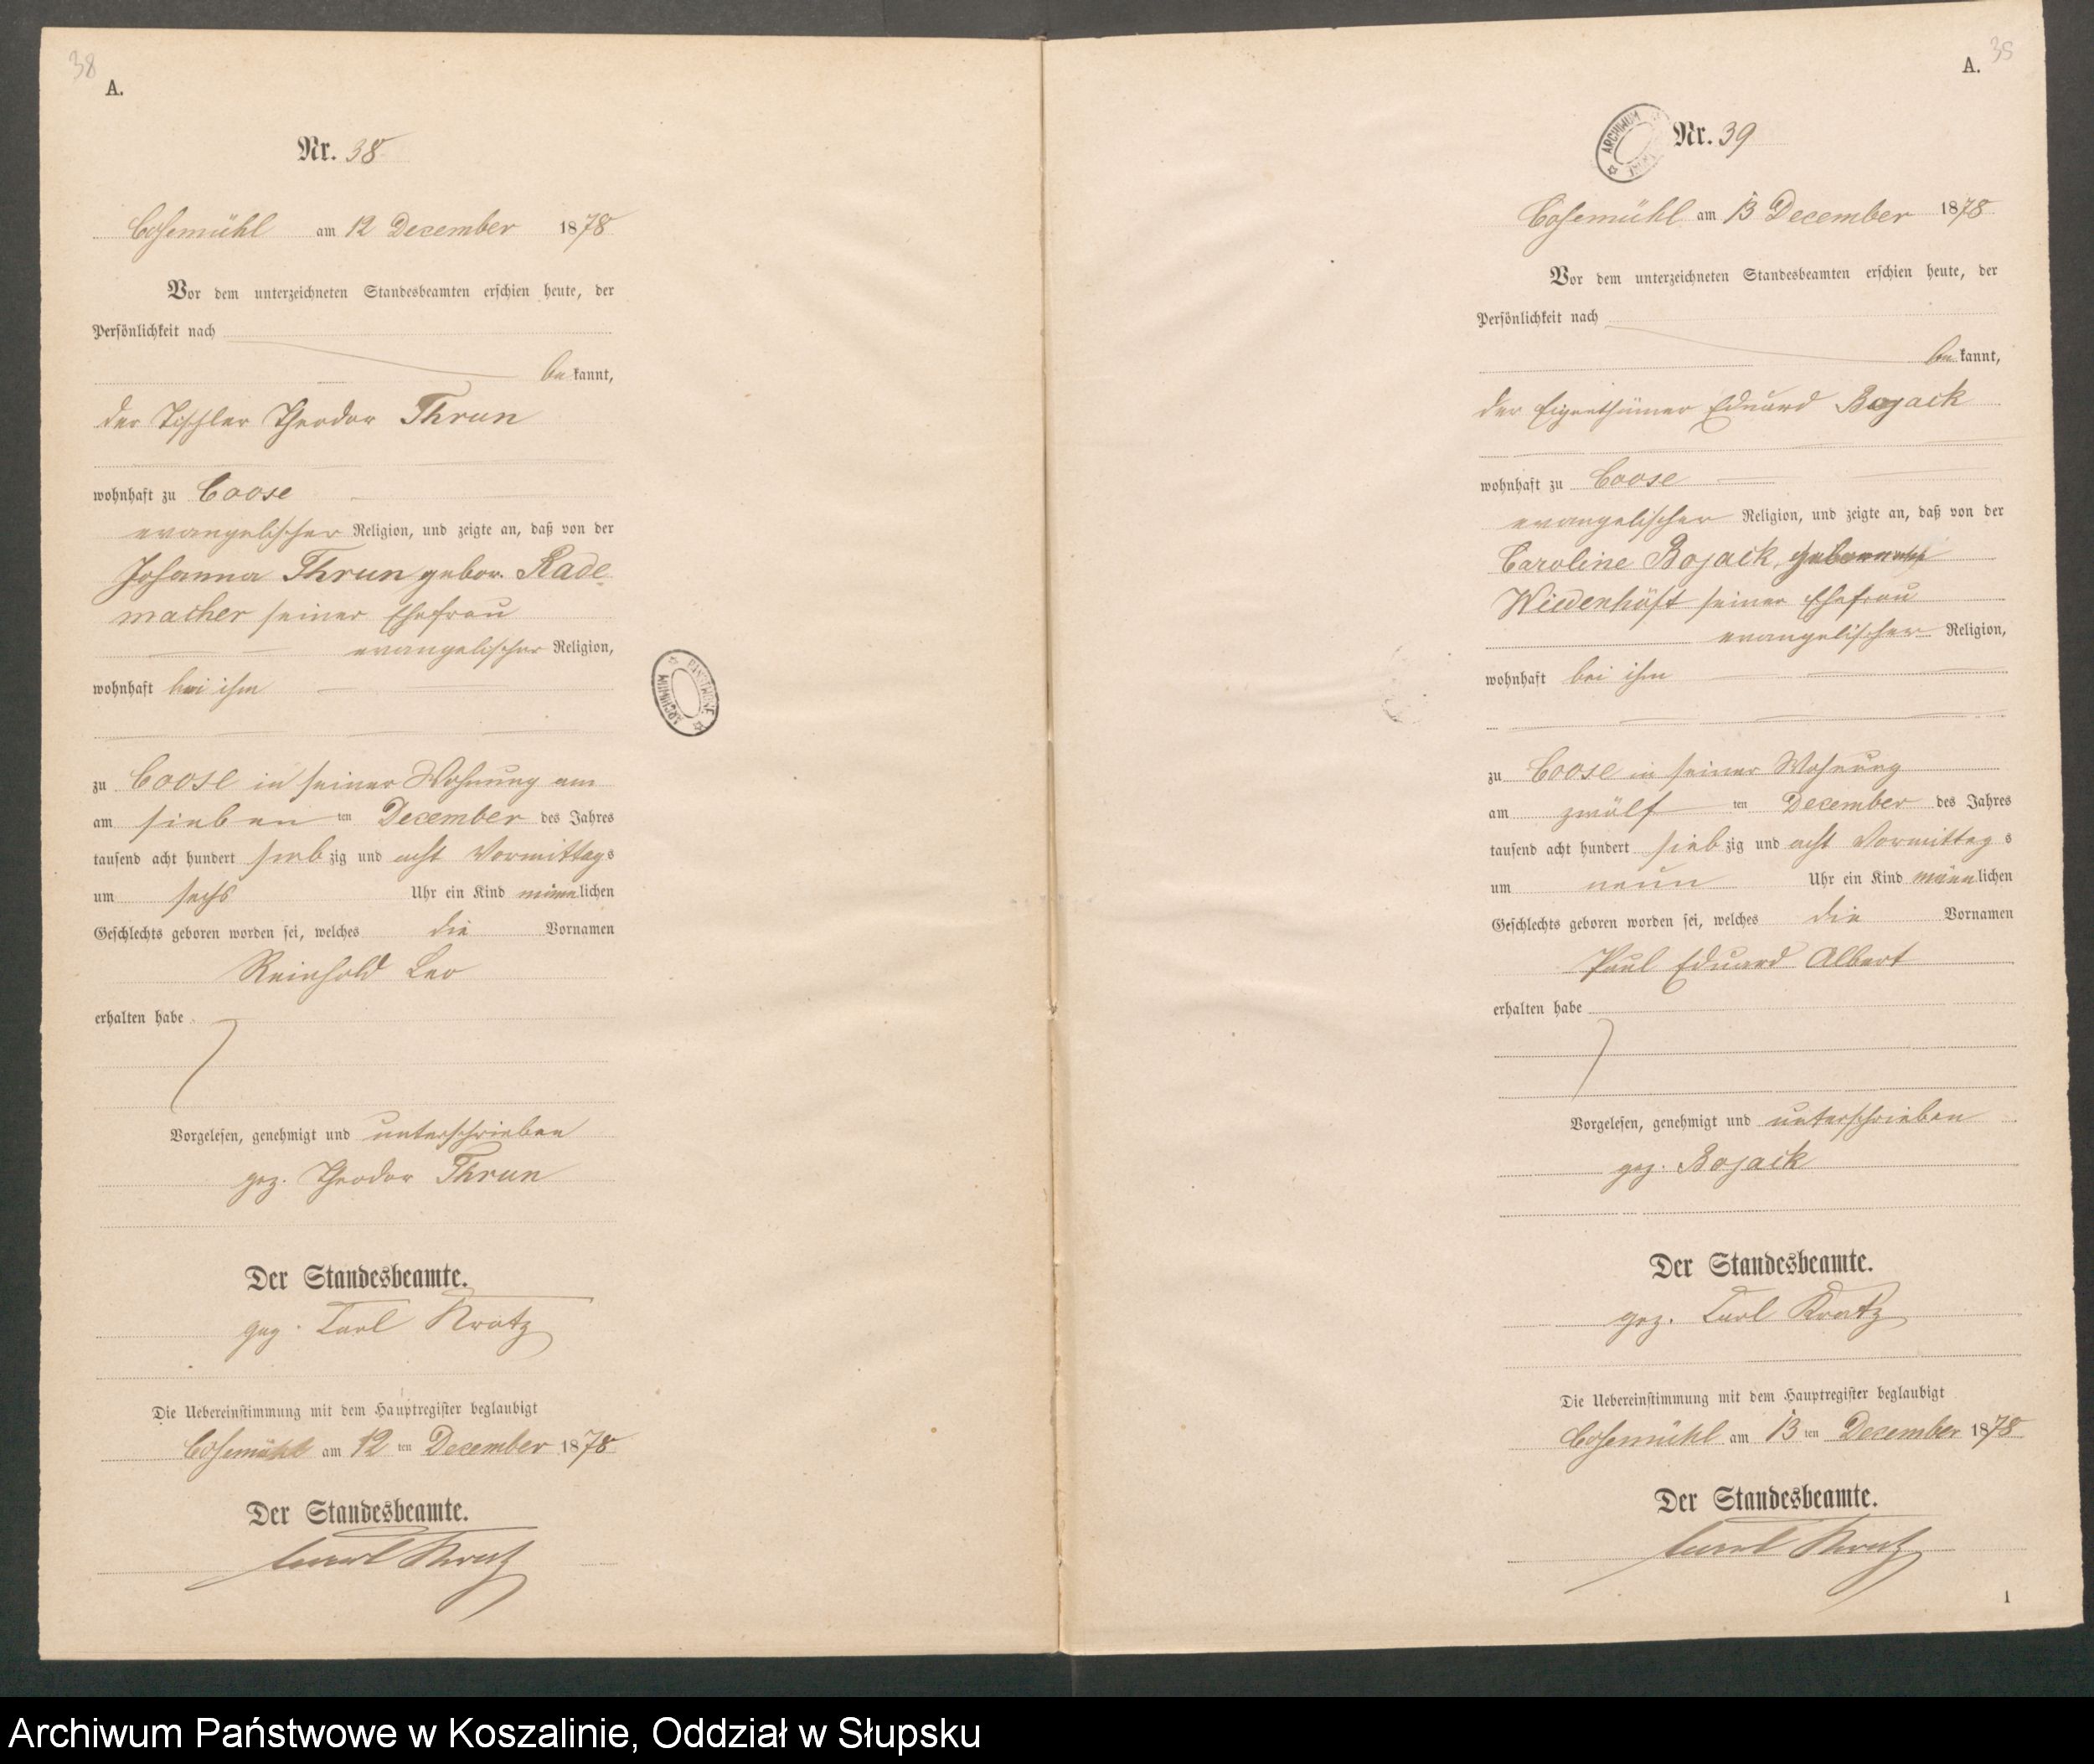 38
A.
Nr. 38
Cosemühl am 12 December 1878
Vor dem unterzeichneten Standesbeamten erschien heute, der
Persönlichkeit nach
bekannt,
der Tischler Theodor Thrun
wohnhaft zu Coose
evangelischer Religion, und zeigte an, daß von der
Johanna Thrun gebor. Rade-
macher seiner Ehefrau
evangelischer Religion,
wohnhaft bei ihm
zu Coose in seiner Wohnung am
am sieben ten December des Jahres
tausend acht hundert siebzig und acht Vormittags
um sechs Uhr ein Kind männlichen
Geschlechts geboren worden sei, welches die Vornamen
Reinhold Leo
erhalten habe
Vorgelesen, genehmigt und unterschrieben
gez. Theodor Thrun
Der Standesbeamte.
gez. Carl Kratz
Die Uebereinstimmung mit dem Hauptregister beglaubigt
Cosemühl am 12 ten December 1878
Der Standesbeamte.
Carl Kratz
ARCHIWUM PAŃSTWOWE
A. 39
ARCHIWUM
Nr. 39
Cosemühl am 13 December 1878
Vor dem unterzeichneten Standesbeamten erschien heute, der
Persönlichkeit nach
bekannt,
der Eigenthümer Eduard Bojack
wohnhaft zu Coose
evangelischer Religion, und zeigte an, daß von der
Caroline Bojack, geborene
Wiedenhöft seiner Ehefrau
evangelischer Religion,
wohnhaft bei ihm
zu Coose in seiner Wohnung
am zwölf ten December des Jahres
tausend acht hundert siebzig und acht Vormittags
um neun Uhr ein Kind männlichen
Geschlechts geboren worden sei, welches die Vornamen
Paul Eduard Albert
erhalten habe
Vorgelesen, genehmigt und unterschrieben
gez. Bojack
Der Standesbeamte.
gez. Carl Kratz
Die Uebereinstimmung mit dem Hauptregister beglaubigt
Cosemühl am 13 ten December 1878
Der Standesbeamte.
Carl Kratz
1
Archiwum Państwowe w Koszalinie, Oddział w Słupsku